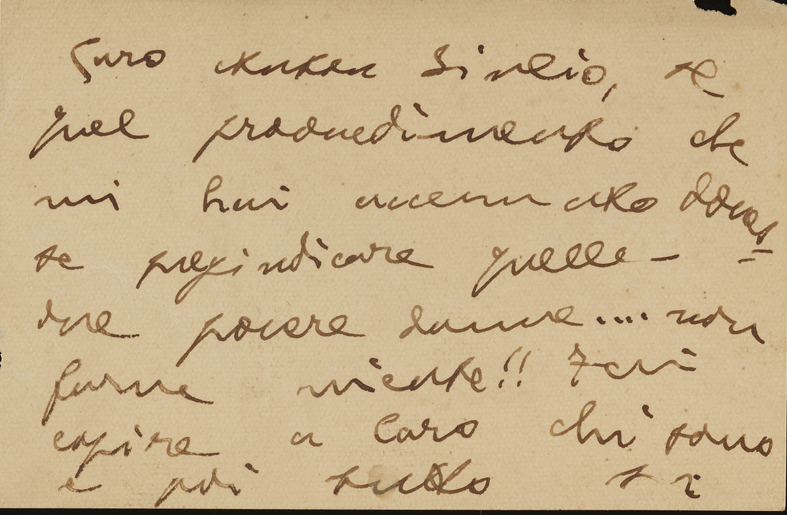 Caro Silvio, se
quel provvedimento che
mi hai accennato doves=
se pregiudicare quelle -
due povere donne.... non
farne niente!!
capire a chi sono
e poi tutto si